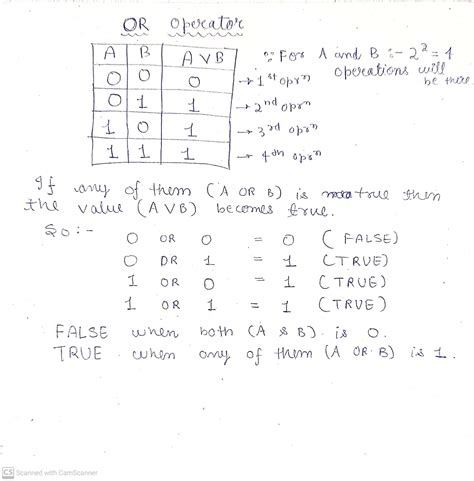 OR Operator
A B A V B
0 0 0 → 1st oprn
0 1 1 → 2nd oprn
1 0 1 → 3rd oprn
1 1 1 → 4th oprn
∵ For A and B :- 2² = 4
operations will
be there.
If any of them (A OR B) is true then
the value (A V B) becomes true.
So :-
0 OR 0 = 0 (FALSE)
0 OR 1 = 1 (TRUE)
1 OR 0 = 1 (TRUE)
1 OR 1 = 1 (TRUE)
FALSE when both (A & B) is 0.
TRUE when any of them (A OR B) is 1.
CS Scanned with CamScanner